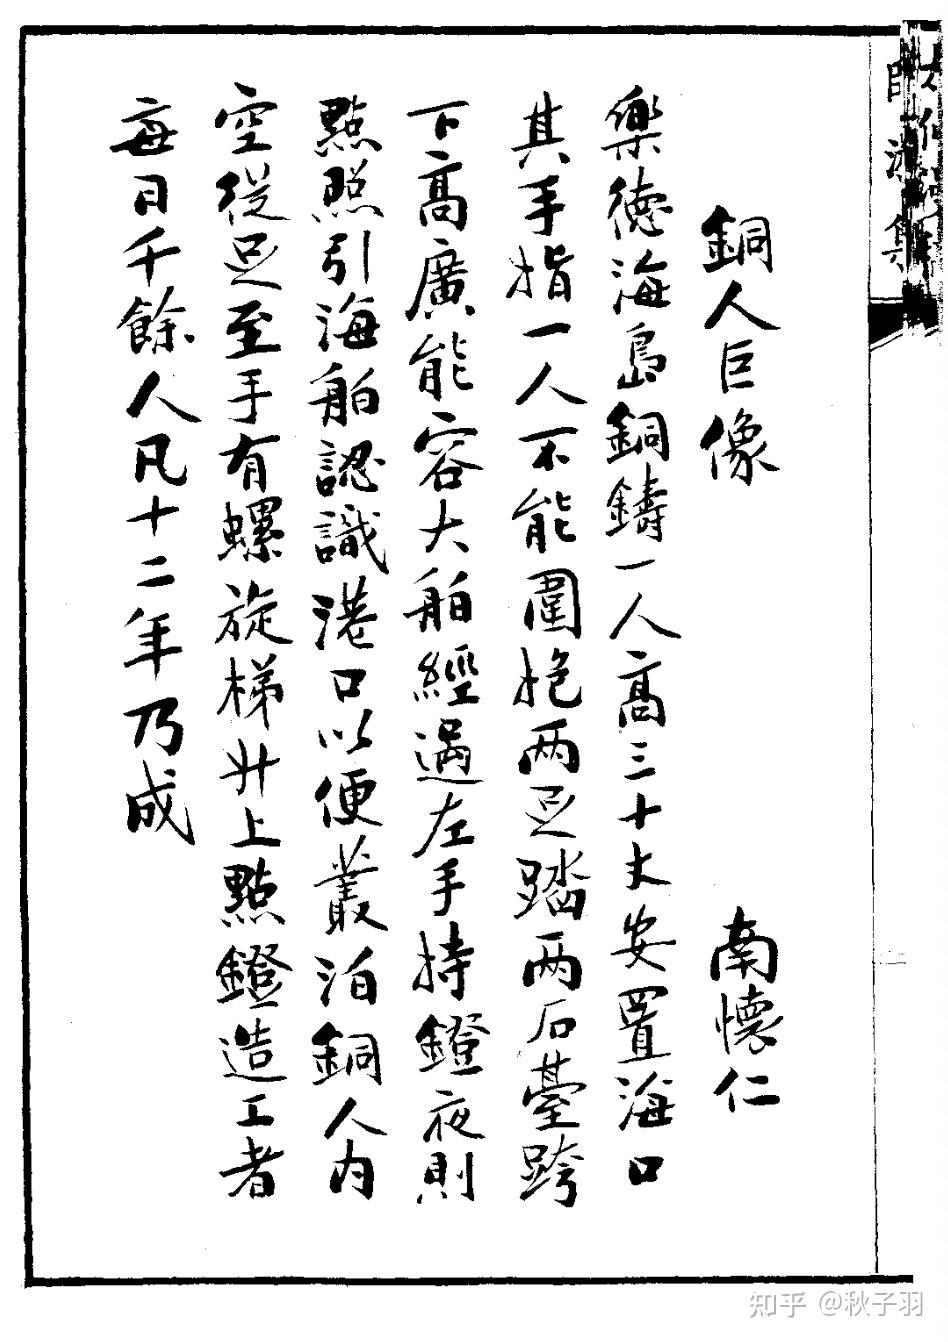 銅人巨像
南懷仁
樂德海島銅鑄一人高三十丈安置海口
其手指一人不能圍抱两足踏两石臺跨
下高廣能容大舶經過左手持鐙夜則
點照引海舶認識港口以便叢泊銅人内
空從足至手有螺旋梯升上點鐙造工者
每日千餘人凡十二年乃成
知乎 @秋子羽